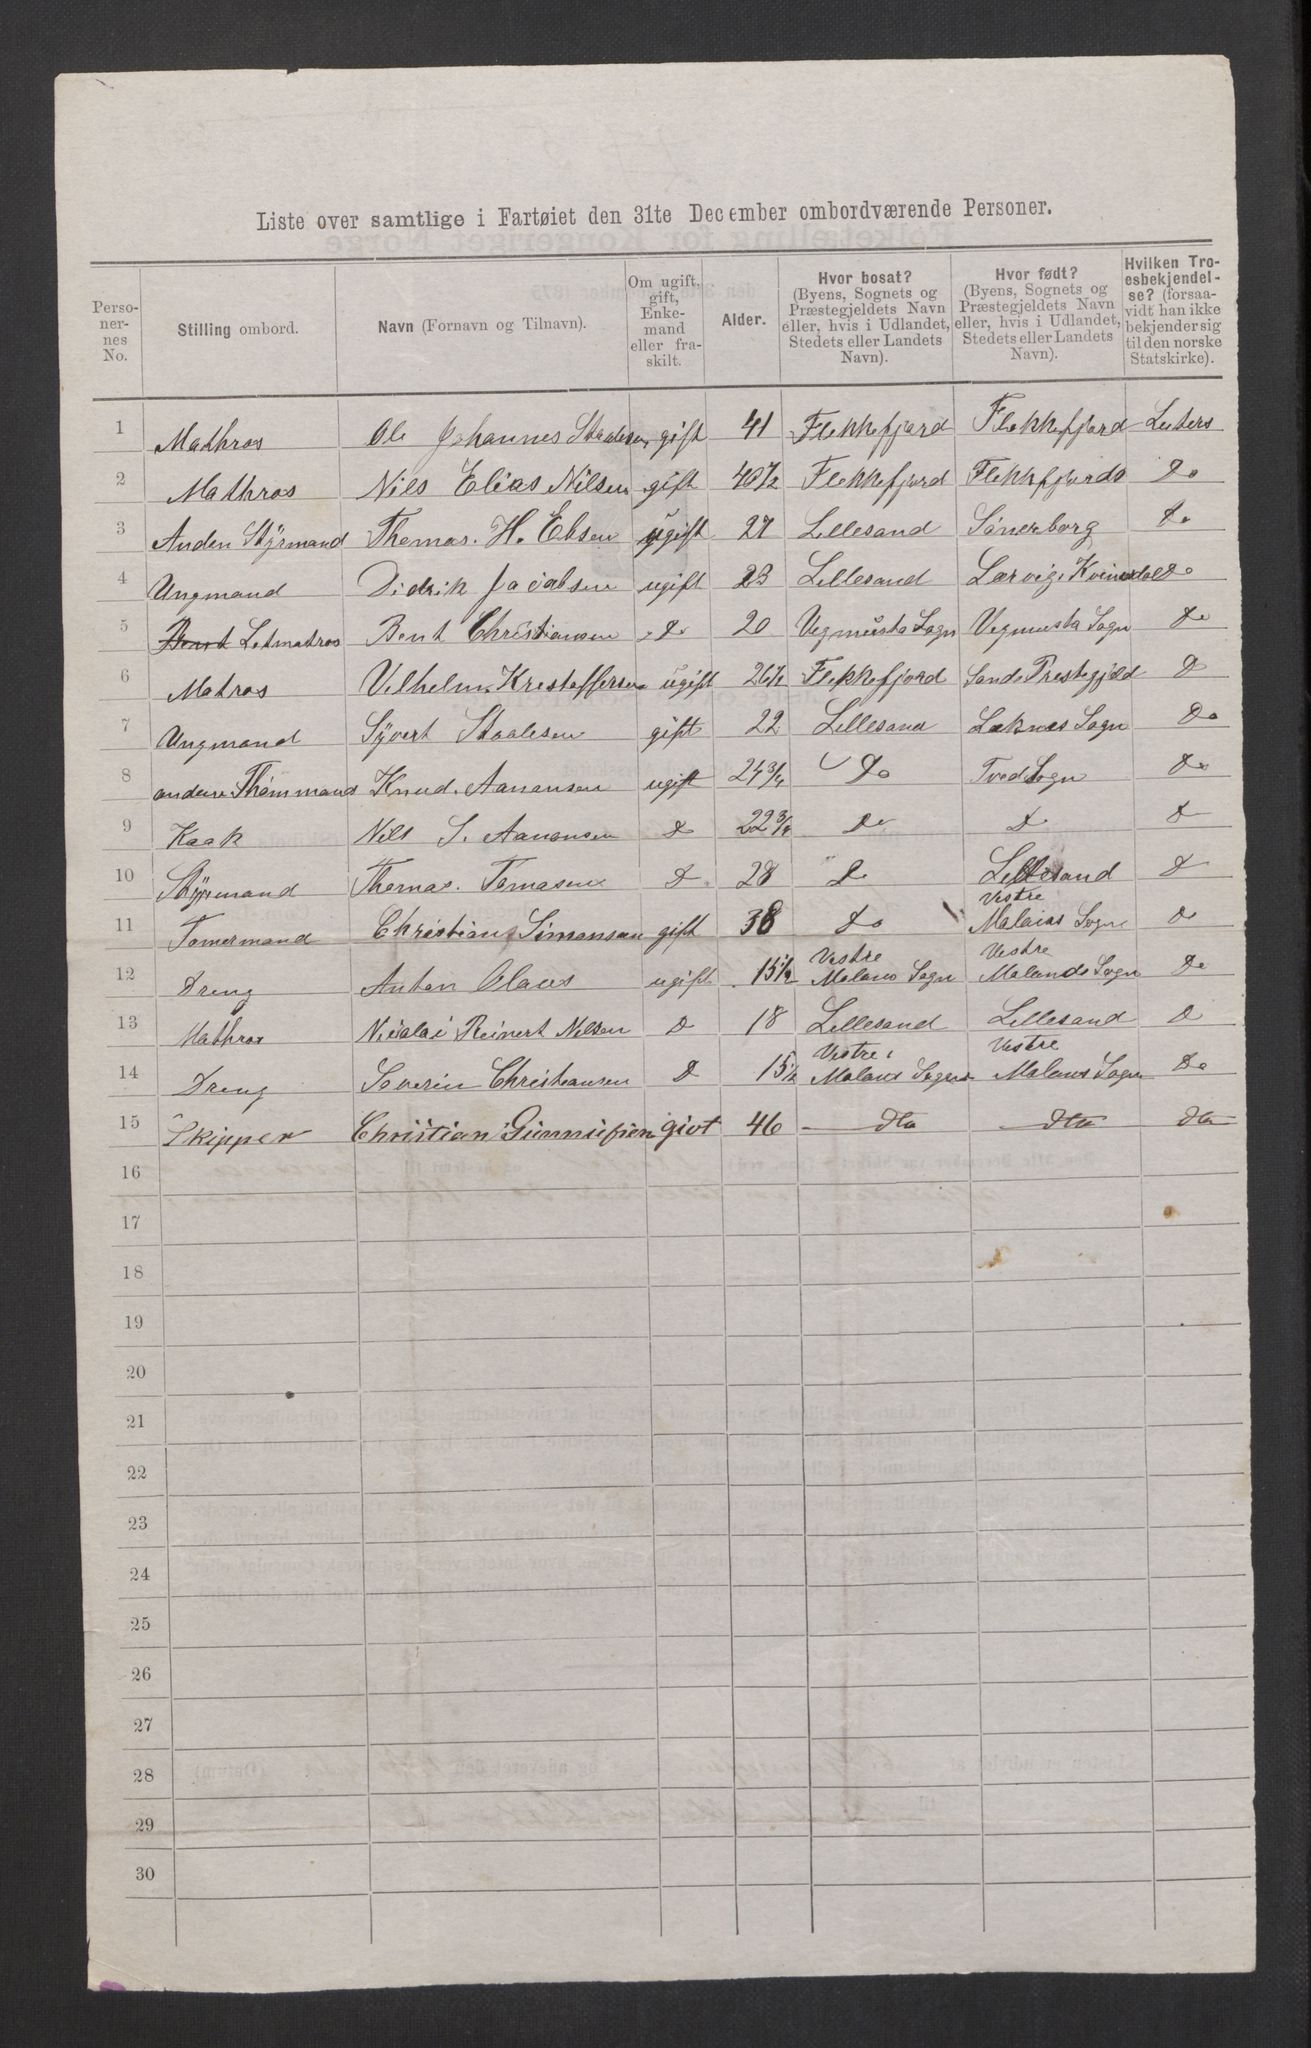 Liste over samtlige i Fartøiet den 31te December ombordværende Personer.
Perso-
ner-
nes
No.
Stilling ombord.
Navn (Fornavn og Tilnavn).
Om ugift,
gift,
Enke-
mand
eller fra-
skilt.
Alder.
Hvor bosat?
(Byens, Sognets og
Præstegjeldets Navn
eller, hvis i Udlandet,
Stedets eller Landets
Navn).
Hvor født?
(Byens, Sognets og
Præstegjeldets Navn
eller, hvis i Udlandet,
Stedets eller Landets
Navn).
Hvilken Tro-
esbekjendel-
se? (forsaa-
vidt han ikke
bekjender sig
til den norske
Statskirke).
1 Mathros Ole Johannes Staalesen gift 41 Flekkefjord Flekkefjord Luters
2 Mathros Nils Elias Nilsen gift 40 1/2 Flekkefjord Flekkfjords Do
3 Anden Styrmand Thomas. H. Ebsen ugift 27 Lillesand Sönerborg Do
4 Ungmand Didrik Jacobsen ugift 23 Lillesand Lærvig i Kvinesdal Do
5 Bernt Letmatros Bent Christiansen Do 20 Vegmusta Sogn Vegmusta Sogn Do
6 Matros Vilhelm Kristoffersen ugift 26 1/2 Flekkefjord Sands Prestegjeld D
7 Ungmand Syvert Staalesen gift 22 Lillesand Laknes Sogn Do
8 andere Thömmand Knud. Aanonsen ugift 24 3/4 Do Tved Sogn Do
9 Kaak Nils S. Aanonsen D 22 3/4 Do D D
10 Styrmand Thomas. Tomasen D 28 Do Lillesand D
11 Tomermand Christian Simonsen gift 38 Do Vestre Malans Sogn Do
12 Dreng Anton Olaus ugift 15 1/2 Vestre Malans Sogn Vestre Malands Sogn Do
13 Mathros Nicolai Reinert Nilsen D 18 Lillesand Lillesand D
14 Dreng Soverin Christiansen D 15 1/2 Vestre Malans Sogn Vestre Malans Sogn Do
15 Skipper Christian Gunnufsen givt 46 dto dto dto
16
17
18
19
20
21
22
23
24
25
26
27
28
29
30